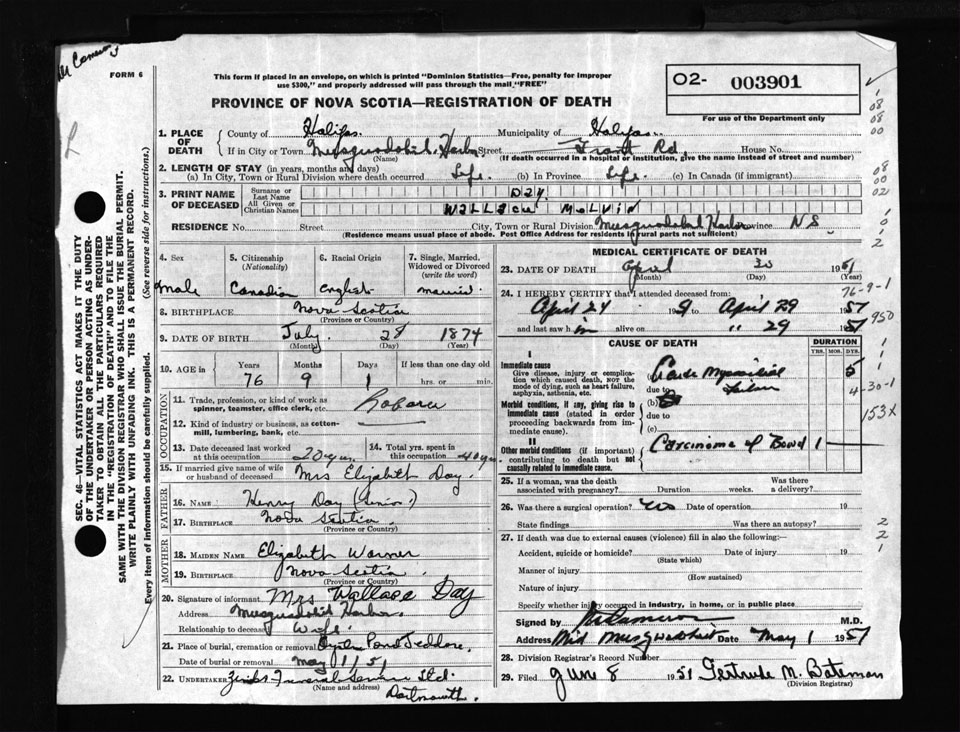 FORM 6
This form if placed in an envelope, on which is printed "Dominion Statistics—Free, penalty for improper
use $300," and properly addressed will pass through the mail "FREE"
O2- 003901
PROVINCE OF NOVA SCOTIA—REGISTRATION OF DEATH
For use of the Department only
1. PLACE OF DEATH
County of Halifax Municipality of Halifax
If in City or Town Street Front Rd. House No.
(Name) (If death occurred in a hospital or institution, give the name instead of street and number)
2. LENGTH OF STAY (in years, months and days)
(a) In City, Town or Rural Division where death occurred Life. (b) In Province Life. (c) In Canada (if immigrant)
3. PRINT NAME OF DECEASED
Surname or Last Name DAY.
All Given or Christian Names WALLACE MELVIN
RESIDENCE No. Street City, Town or Rural Division Province NS
(Residence means usual place of abode. Post Office Address for residents in rural parts not sufficient)
SEC. 46—VITAL STATISTICS ACT MAKES IT THE DUTY
OF THE UNDERTAKER OR PERSON ACTING AS UNDER-
TAKER TO OBTAIN ALL THE PARTICULARS REQUIRED
IN THE "REGISTRATION OF DEATH" AND TO FILE THE
SAME WITH THE DIVISION REGISTRAR WHO SHALL ISSUE THE BURIAL PERMIT.
WRITE PLAINLY WITH UNFADING INK. THIS IS A PERMANENT RECORD.
Every item of information should be carefully supplied. (See reverse side for instructions.)
4. Sex
Male
5. Citizenship
(Nationality)
Canadian
6. Racial Origin
English
7. Single, Married, Widowed or Divorced
(write the word)
Married
8. BIRTHPLACE Nova Scotia
(Province or Country)
9. DATE OF BIRTH July 28 1874
(Month) (Day) (Year)
10. AGE in Years Months Days If less than one day old
76 9 1 hrs. or min.
OCCUPATION
11. Trade, profession, or kind of work as
spinner, teamster, office clerk, etc.
12. Kind of industry or business, as cotton-
mill, lumbering, bank, etc.
13. Date deceased last worked
at this occupation
14. Total yrs. spent in
this occupation 40 yrs.
15. If married give name of wife
or husband of deceased Mrs Elizabeth Day.
FATHER
16. NAME Henry Day
17. BIRTHPLACE Nova Scotia
MOTHER
18. MAIDEN NAME Elizabeth Warner
19. BIRTHPLACE Nova Scotia
(Province or Country)
20. Signature of informant Mrs Wallace Day
Address Musquodoboit Harbor
Relationship to deceased Wife
21. Place of burial, cremation or removal Oyster Pond Jeddore.
Date of burial or removal May 1/51
22. UNDERTAKER Funeral Service Ltd.
(Name and address) Dartmouth.
MEDICAL CERTIFICATE OF DEATH
23. DATE OF DEATH April 30 1951
(Month) (Day) (Year)
24. I HEREBY CERTIFY that I attended deceased from:
April 24 19 April 29 1951
and last saw him alive on " 29 1951
CAUSE OF DEATH DURATION
YRS. MOS. DYS.
I
Immediate cause
Give disease, injury or complica-
tion which caused death, NOT the
mode of dying, such as heart failure,
asphyxia, asthenia, etc.
(a) Acute Myocardial 5
Failure
due to
Morbid conditions, if any, giving rise to
immediate cause (stated in order
proceeding backwards from im-
mediate cause).
(b)
due to
(c)
II
Other morbid conditions (if important)
contributing to death but not
causally related to immediate cause.
Carcinoma of Bowel 1
25. If a woman, was the death Was there
associated with pregnancy? Duration weeks. a delivery?
26. Was there a surgical operation? Date of operation 19
State findings Was there an autopsy?
27. If death was due to external causes (violence) fill in also the following:—
Accident, suicide or homicide? Date of injury 19
(State which)
Manner of injury
(How sustained)
Nature of injury
Specify whether injury occurred in industry, in home, or in public place
Signed by M.D.
Address Mid Musquodoboit Date May 1 1951
28. Division Registrar's Record Number
29. Filed June 8 1951 Gertrude M. Bateman
(Division Registrar)
76-9-1
950
4-30-1
153X